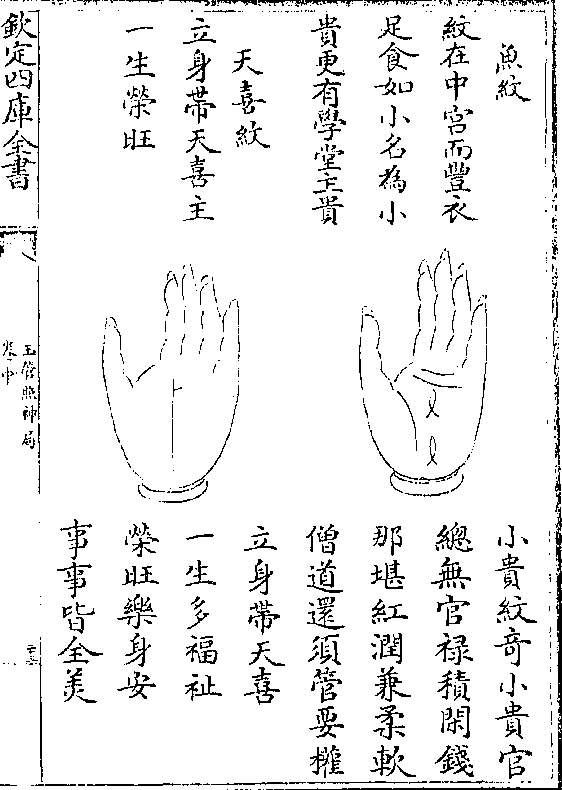 魚紋
紋在中宮而豐衣
足食如小名為小
貴更有學堂主貴
天喜紋
立身帶天喜主
一生榮旺
小貴紋奇小貴官
總無官禄積閑錢
那堪紅潤兼柔軟
僧道還須管要權
立身帶天喜
一生多福祉
榮旺樂身安
事事皆全美
欽定四庫全書
玉管照神局
卷中